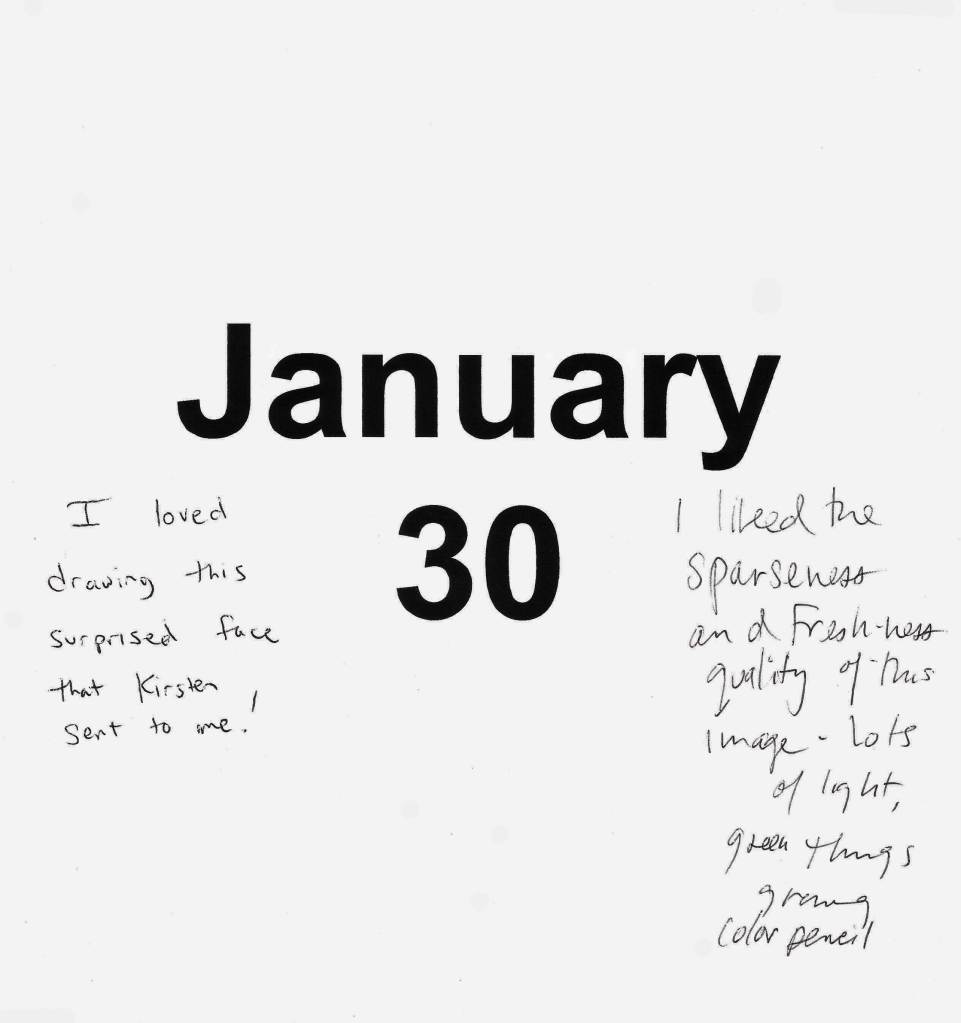 January
30
I loved
drawing this
surprised face
that Kirsten
sent to me!
I liked the
sparseness
and Fresh-ness
quality of this
image - lots
of light,
green things
growing
color pencil